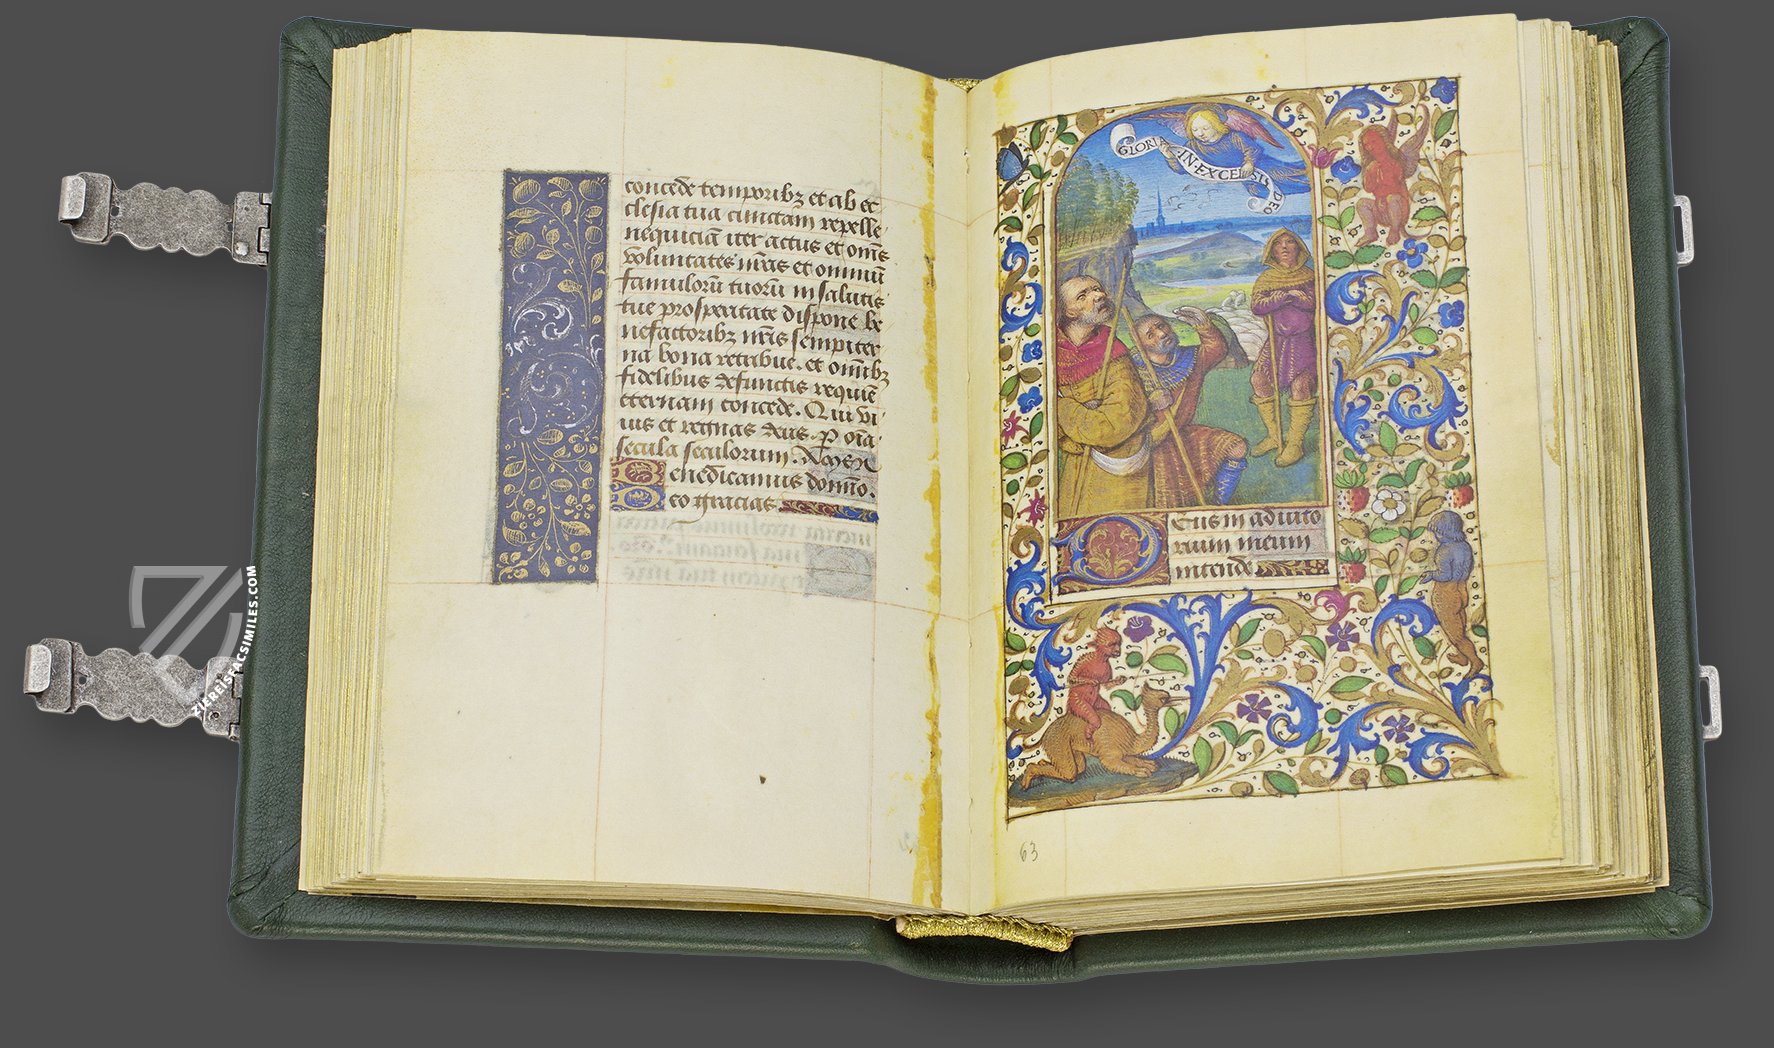 concede temporibꝫ et ab ec
clesia tua cunctam repelle
nequiciā iter actus et om̄s
voluntates nr̄as et omniū
famulorū tuorū in salutis
tue prosperitate dispone be
nefactoribꝫ nr̄is sempiter
na bona retribue. et om̄ibꝫ
fidelibus defunctis requiē
eternam concede. Qui vi
uis et regnas deus. P̱ om̄a
secula seculorum. Amen
Benedicamus domīno.
Deo gracias
GLORIA IN EXCELSIS DEO
Deus in adiuto
rium meum
intende
63
ZIEREISFACSIMILES.COM